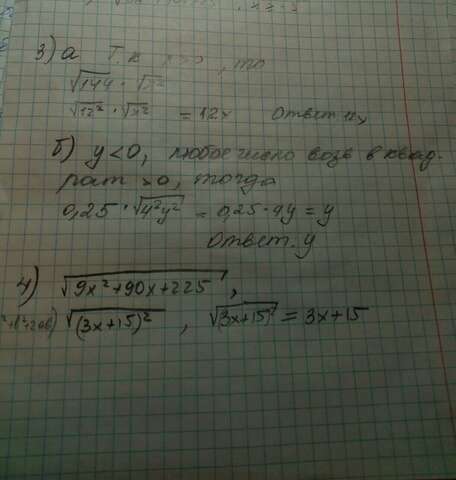 3) а Т.к x>0, то
√144 · √x²
√12² · √x² = 12x Ответ 12x
б) y<0, любое число возв в квад-
рат >0, тогда
0,25 · √4²y² = 0,25 · 4y = y
Ответ. y
4) √9x²+90x+225 ,
√(3x+15)² , √(3x+15)² = 3x+15